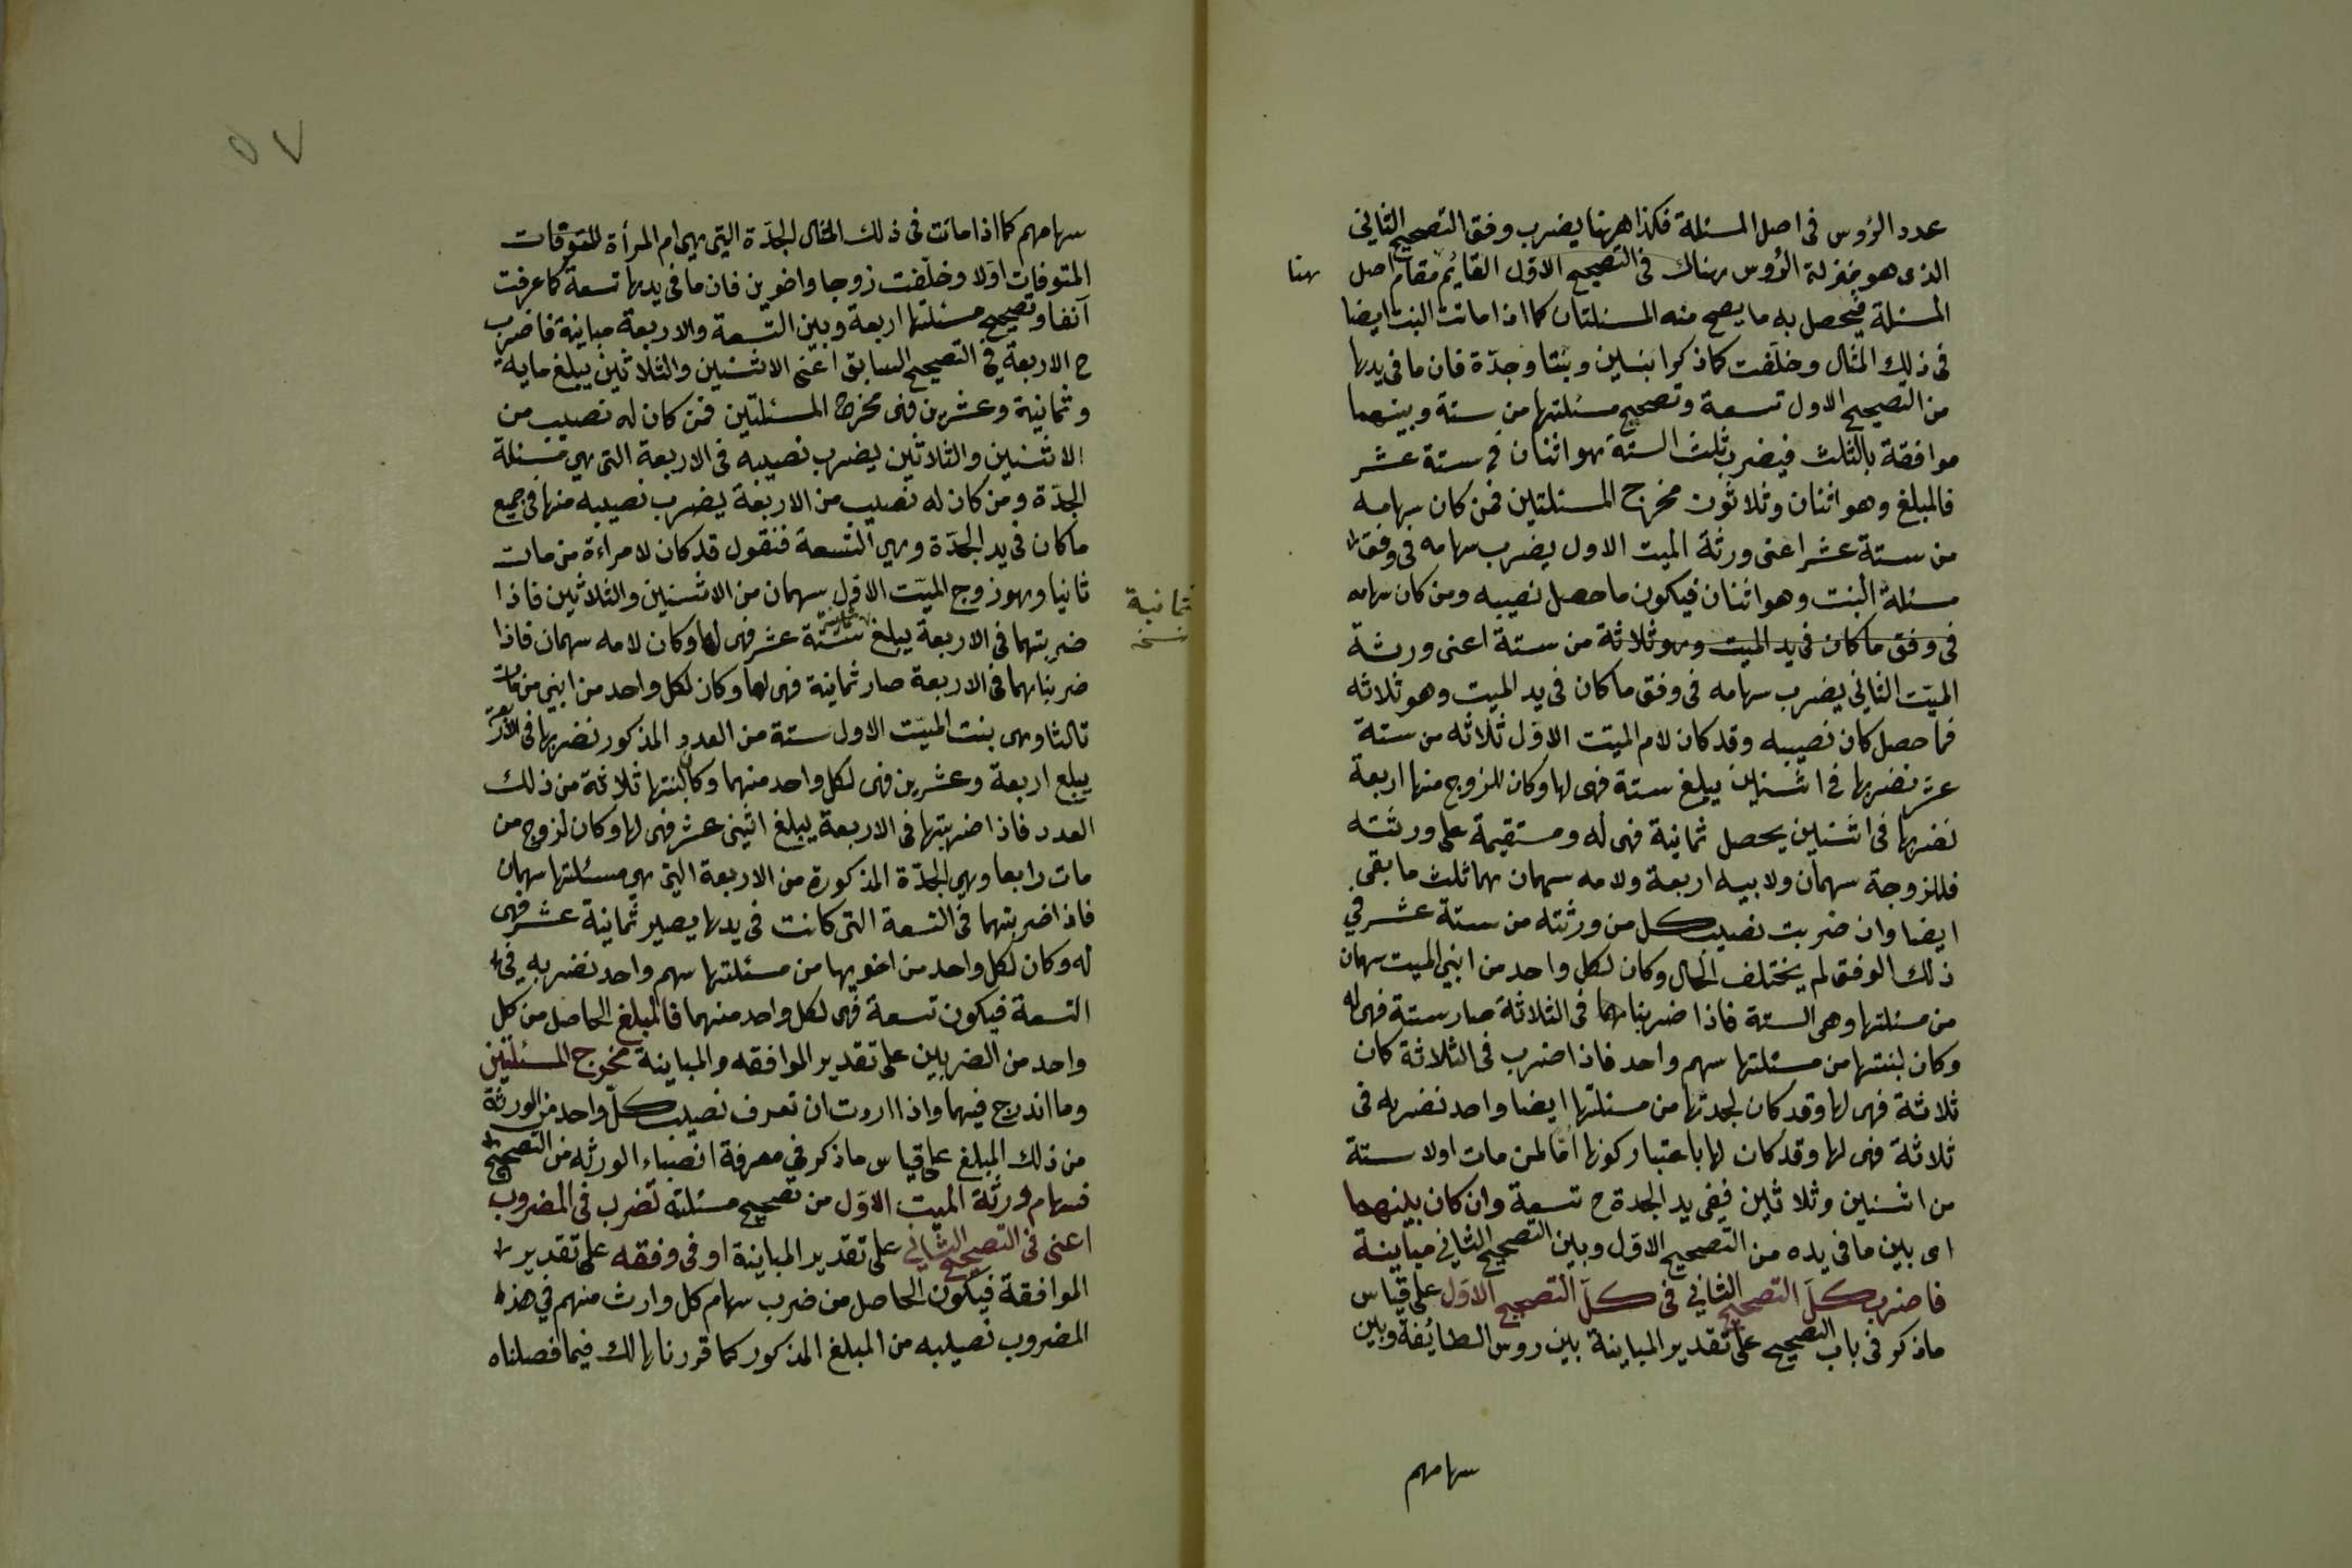 عدد الرؤس فى اصل المسئلة فكذا ههنا يضرب وفق التصحيح الثانى
الذى هو بمنزلة الرؤس هناك فى التصحيح الاول القائم مقام اصل
هنا
المسئلة فيحصل به ما يصح منه المسئلتان كما اذا ماتت البنت ايضا
فى ذلك المثال وخلفت كما ذكر ابنين وبنتا وجدّة فان ما فى يدها
من التصحيح الاول تسعة وتصحيح مسئلتها من ستة وبينهما
موافقة بالثلث فيضرب ثلث الستة هو اثنان فى ستة عشر
فالمبلغ وهو اثنان وثلاثون مخرج المسئلتين فمن كان سهامه
من ستة عشر اعنى ورثة الميت الاول يضرب سهامه فى وفق
مسئلة البنت وهو اثنان فيكون ما حصل نصيبه ومن كان سهامه
فى وفق ما كان فى يد الميت وهو ثلاثة من ستة اعنى ورثة
الميّت الثانى يضرب سهامه فى وفق ما كان فى يد الميت وهو ثلاثه
فما حصل كان نصيبه وقد كان لام الميّت الاوّل ثلاثه من ستة
عشر نضربها فى اثنين يبلغ ستة فهى لها وكان للزوج منها اربعة
نضربها فى اثنين يحصل ثمانية فهى له ومستقيمة على ورثته
فللزوجة سهمان ولابيه اربعة ولامه سهمان هما ثلث ما بقى
ايضا وان ضربت نصيب كل من ورثته من ستة عشر فى
ذلك الوفق لم يختلف الحال وكان لكل واحد من ابنى الميت سهمان
من مسئلتها وهى الستة فاذا ضربناهما فى الثلاثة صار ستة فهى له
وكان لبنتها من مسئلتها سهم واحد فاذا اضرب فى الثلاثة كان
ثلاثة فهى لها وقد كان لجدتها من مسئلتها ايضا واحد نضربه فى
ثلاثة فهى لها وقد كان لها باعتبار كونها امّا لمن مات اولا ستة
من اثنين وثلاثين ففى يد الجدة ح تسعة وان كان بينهما
اى بين ما فى يده من التصحيح الاوّل وبين التصحيح الثانى مباينة
فاضرب كلّ التصحيح الثانى فى كلّ التصحيح الاوّل على قياس
ما ذكر فى باب التصحيح على تقدير المباينة بين روس الطايفة وبين
سهامهم
٥٧
سهامهم كما اذا ماتت فى ذلك المثال الجدّة التى هى ام المرأة المتوفات
المتوفات اوّلا وخلّفت زوجا واخوين فان ما فى يدها تسعة كما عرفت
آنفا وتصحيح مسئلتها اربعة وبين التسعة والاربعة مباينة فاضرب
ح الاربعة فى التصحيح السابق اعنى الاثنين والثلاثين يبلغ مايه
وثمانية وعشرين فهى مخرج المسئلتين فمن كان له نصيب من
الاثنين والثلاثين يضرب نصيبه فى الاربعة التى هى مسئلة
الجدّة ومن كان له نصيب من الاربعة يضرب نصيبه منها فى جميع
ما كان فى يد الجدّة وهى التسعة فنقول قد كان لامراءة من مات
ثانيا وهو زوج الميّت الاوّل سهمان من الاثنين والثلاثين فاذا
ثمانية
نسخه
ضربتهما فى الاربعة يبلغ ستة عشر فهى لها وكان لامه سهمان فاذا
ضربناهما فى الاربعة صار ثمانية فهى لها وكان لكل واحد من ابنى من مات
ثالثا وهى بنت الميّت الاول ستة من العدد المذكور نضربها فى الاربعة
يبلع اربعة وعشرين فهى لكل واحد منهما وكان لبنتها ثلاثة من ذلك
العدد فاذا ضربتها فى الاربعة يبلغ اثنى عشر فهى لها وكان لزوج من
مات رابعا وهى الجدّة المذكورة من الاربعة التى هى مسئلتها سهمان
فاذا ضربتهما فى التسعة التى كانت فى يدها يصير ثمانية عشر فهى
له وكان لكل واحد من اخويها من مسئلتها سهم واحد نضربه فى
التسعة فيكون تسعة فهى لكل واحد منهما فالمبلغ الحاصل من كل
واحد من الضربين على تقدير الموافقه والمباينة مخرج المسئلتين
وما اندرج فيهما واذا اردت ان تعرف نصيب كلّ واحد من الورثة
من ذلك المبلغ على قياس ما ذكر فى معرفة انصباء الورثه من التصحيح
فسهام ورثة الميت الاوّل من تصحيح مسئلته تضرب فى المضروب
اعنى فى التصحيح الثانى على تقدير المباينة او فى وفقه على تقدير
الموافقة فيكون الحاصل من ضرب سهام كل وارث منهم فى هذا
المضروب نصيبه من المبلغ المذكور كما قررناها لك فيما فصلناه